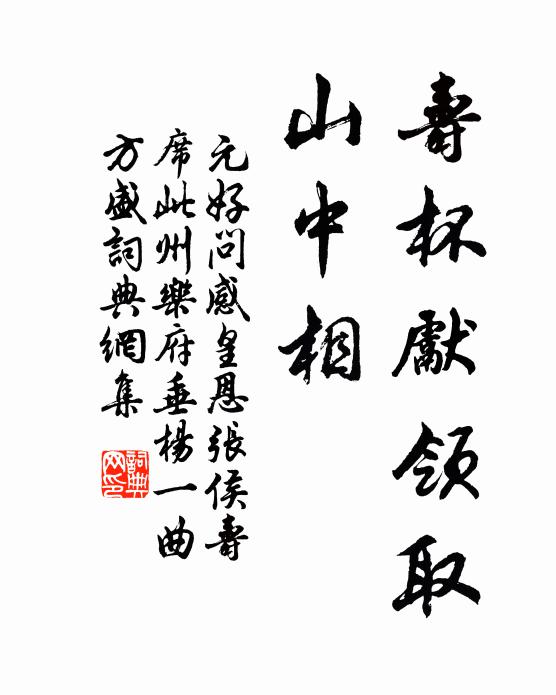 壽杯獻領取
山中相
元好問感皇恩張侯壽
席此州樂府垂楊一曲
方盛詞典網集
詞典网印